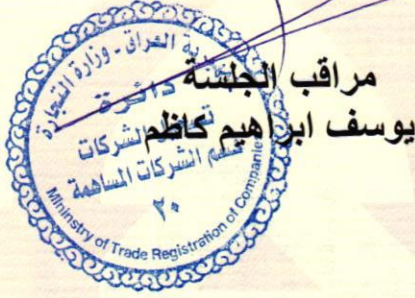 مراقب الجلسة
يوسف ابراهيم كاظم
جمهورية العراق - وزارة التجارة
دائرة
تسجيل الشركات
قسم الشركات المساهمة
٢٠
Mininstry of Trade Registration of Companies